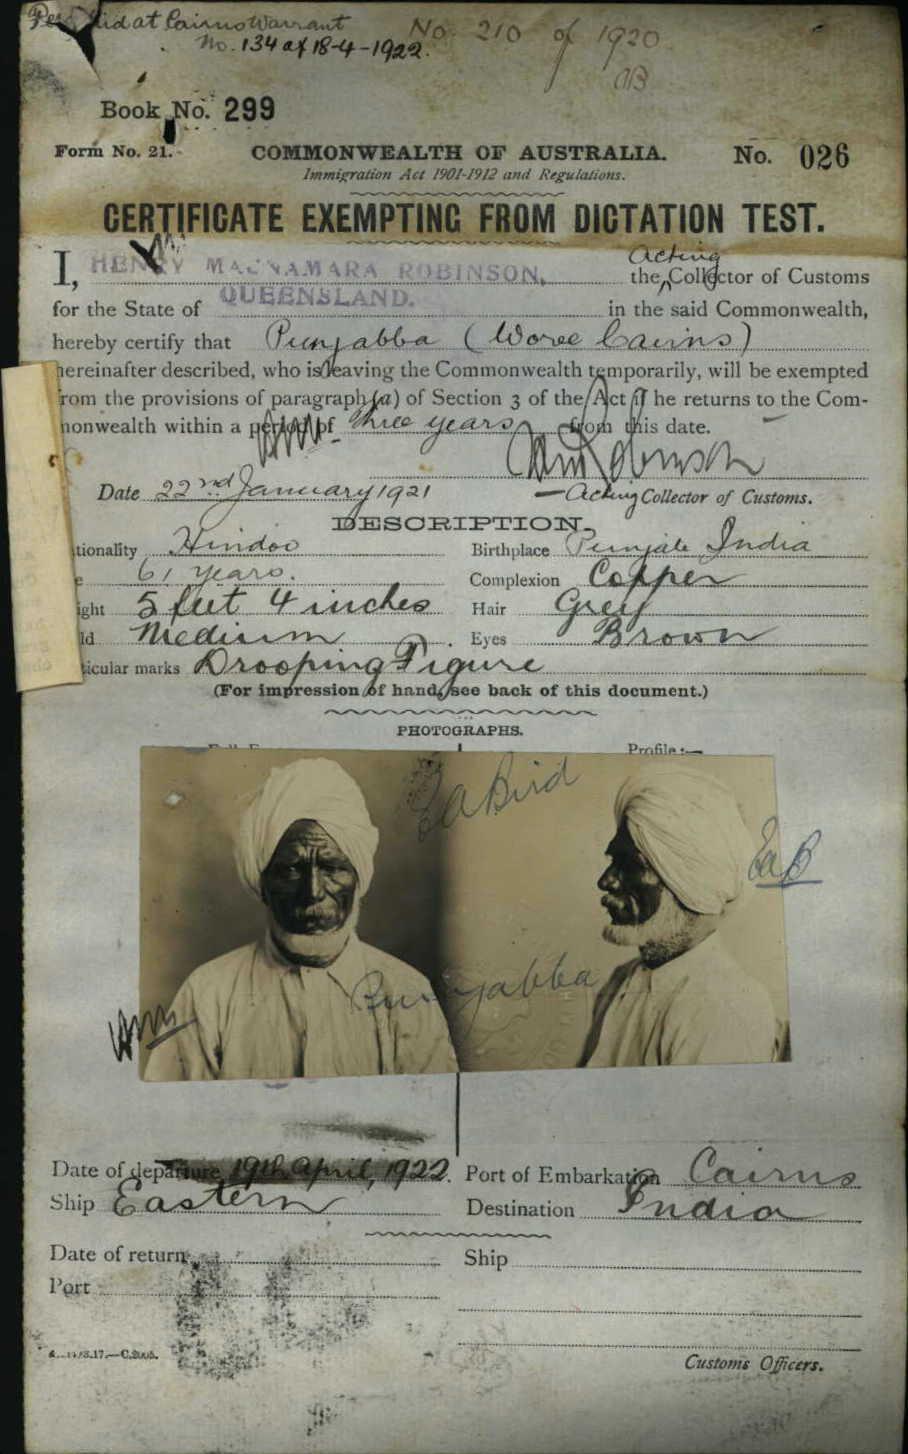 Paid at Cairns Warrant
No. 134 of 18-4-1922.
No. 210 of 1920
Book No. 299
Form No. 21.
COMMONWEALTH OF AUSTRALIA.
No. 026
Immigration Act 1901-1912 and Regulations.
CERTIFICATE EXEMPTING FROM DICTATION TEST.
I, HENRY MACNAMARA ROBINSON, the Acting Collector of Customs
for the State of QUEENSLAND. in the said Commonwealth,
hereby certify that Punjabba (Woree Cairns)
hereinafter described, who is leaving the Commonwealth temporarily, will be exempted
from the provisions of paragraph (a) of Section 3 of the Act if he returns to the Com-
monwealth within a period of three years from this date.
Date 22nd January 1921
Acting Collector of Customs.
DESCRIPTION.
tionality Hindoo Birthplace Punjab India
e 61 years. Complexion Copper
ight 5 feet 4 inches Hair Grey
ld Medium. Eyes Brown
ticular marks Drooping Figure
(For impression of hand, see back of this document.)
PHOTOGRAPHS.
Profile:—
Ea Bird
EaB
Punjabba
Date of departure 19th April, 1922. Port of Embarkation Cairns
Ship Eastern Destination India
Date of return Ship
Port
Customs Officers.